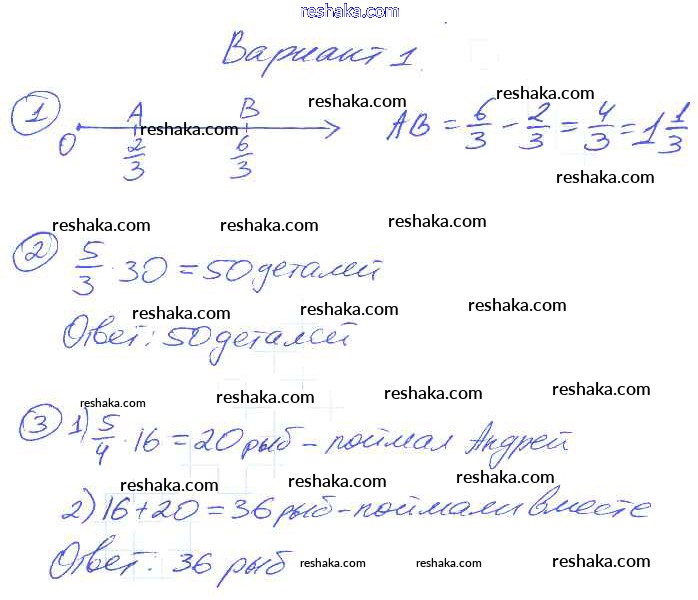 reshaka.com
Вариант 1
reshaka.com reshaka.com
① O A 2/3 B 6/3 AB = 6/3 - 2/3 = 4/3 = 1 1/3
reshaka.com
reshaka.com
reshaka.com reshaka.com reshaka.com
② 5/3 · 30 = 50 деталей
reshaka.com reshaka.com reshaka.com
Ответ: 50 деталей
reshaka.com reshaka.com reshaka.com reshaka.com
③ 1) 5/4 · 16 = 20 рыб - поймал Андрей
reshaka.com reshaka.com reshaka.com
2) 16 + 20 = 36 рыб - поймали вместе
Ответ: 36 рыб
reshaka.com reshaka.com reshaka.com